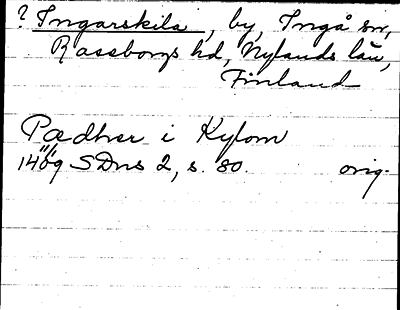 ? Ingarskila, by, Ingå sn,
Raseborgs hd, Nylands län,
Finland
Pædher i Kylom
1409 SDns 2, s. 80. orig.